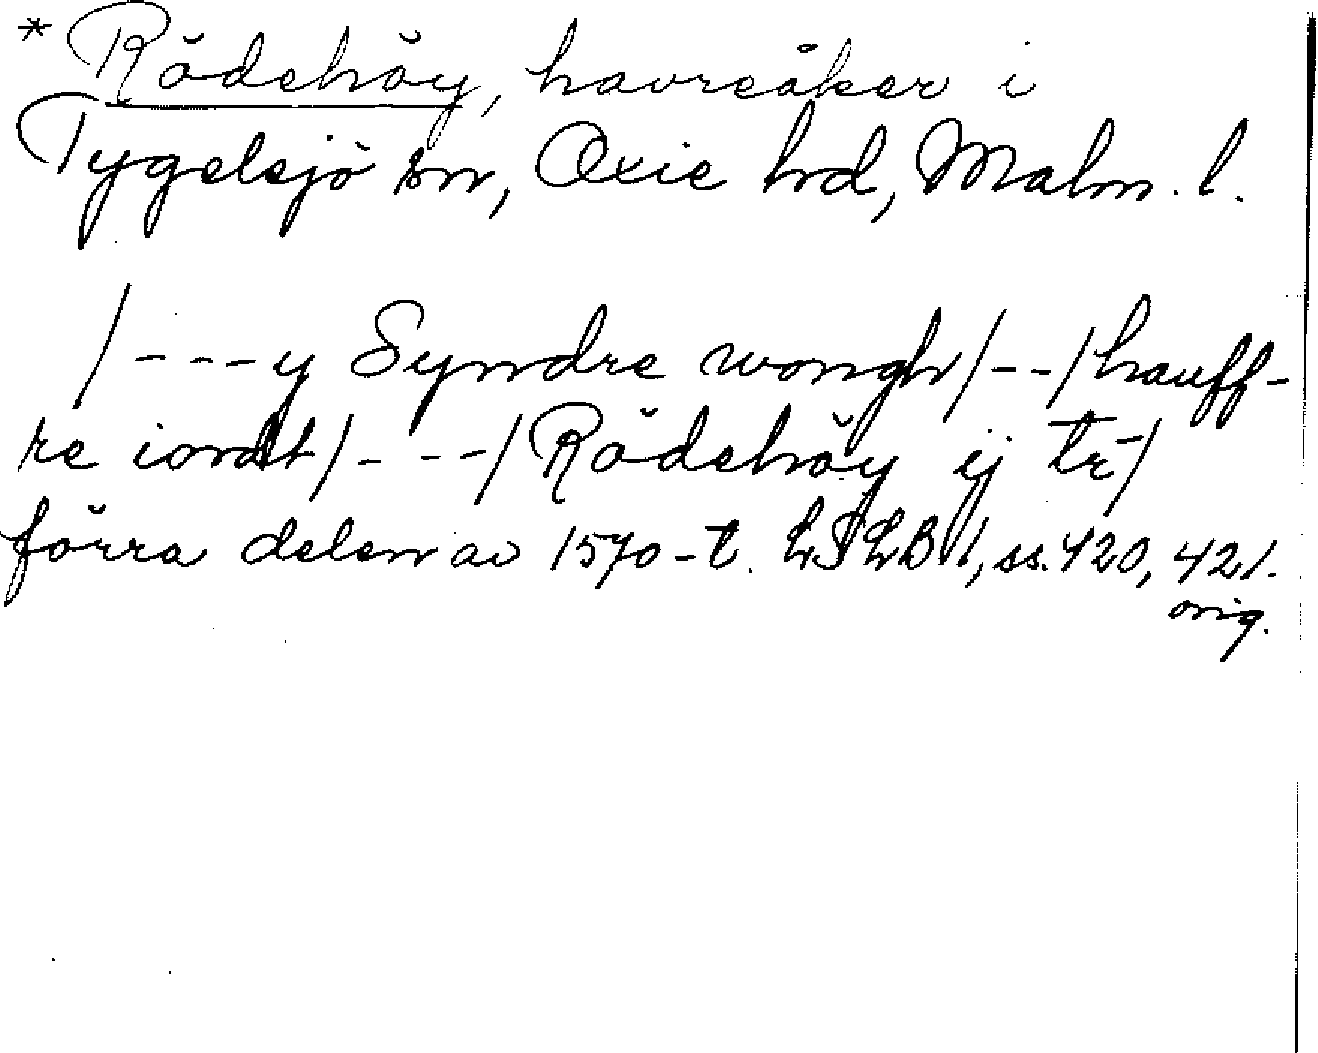 * Rödehöy, havreåker i
Tygelsjö sn, Oxie hd, Malm. l.
/---y Syndre wongh/--/hauff-
re iordt/---/Rödehöy ij tr/
förra delen av 1570-t. LSLB 1, ss. 420, 421.
orig.